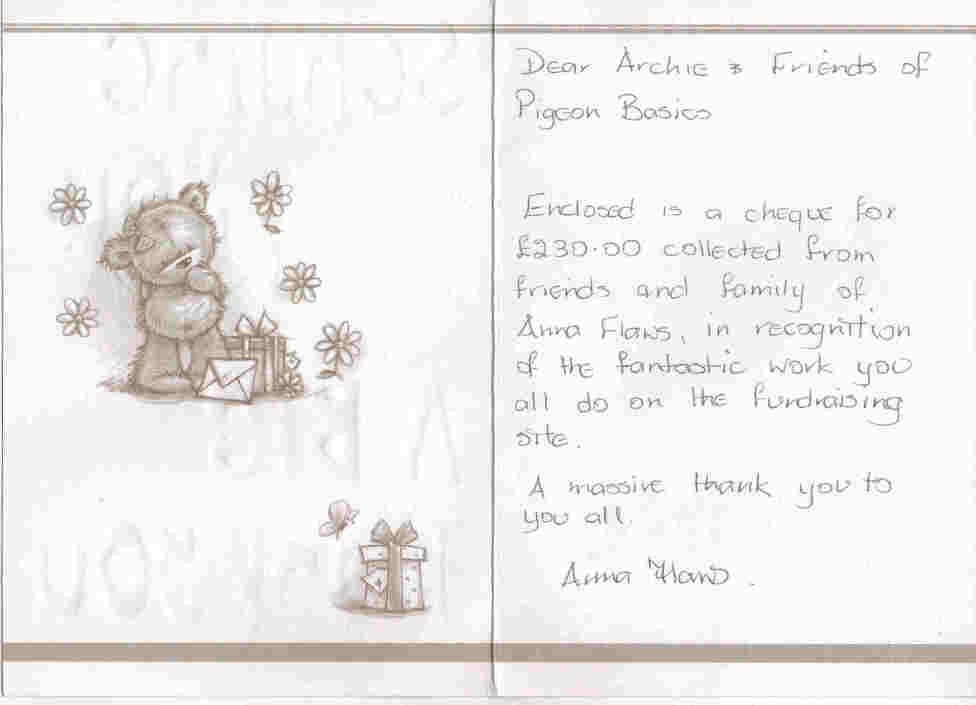 Dear Archie & Friends of
Pigeon Basics
Enclosed is a cheque for
£230.00 collected from
friends and family of
Anna Flaws, in recognition
of the fantastic work you
all do on the fundraising
site.
A massive thank you to
you all.
Anna Flaws.